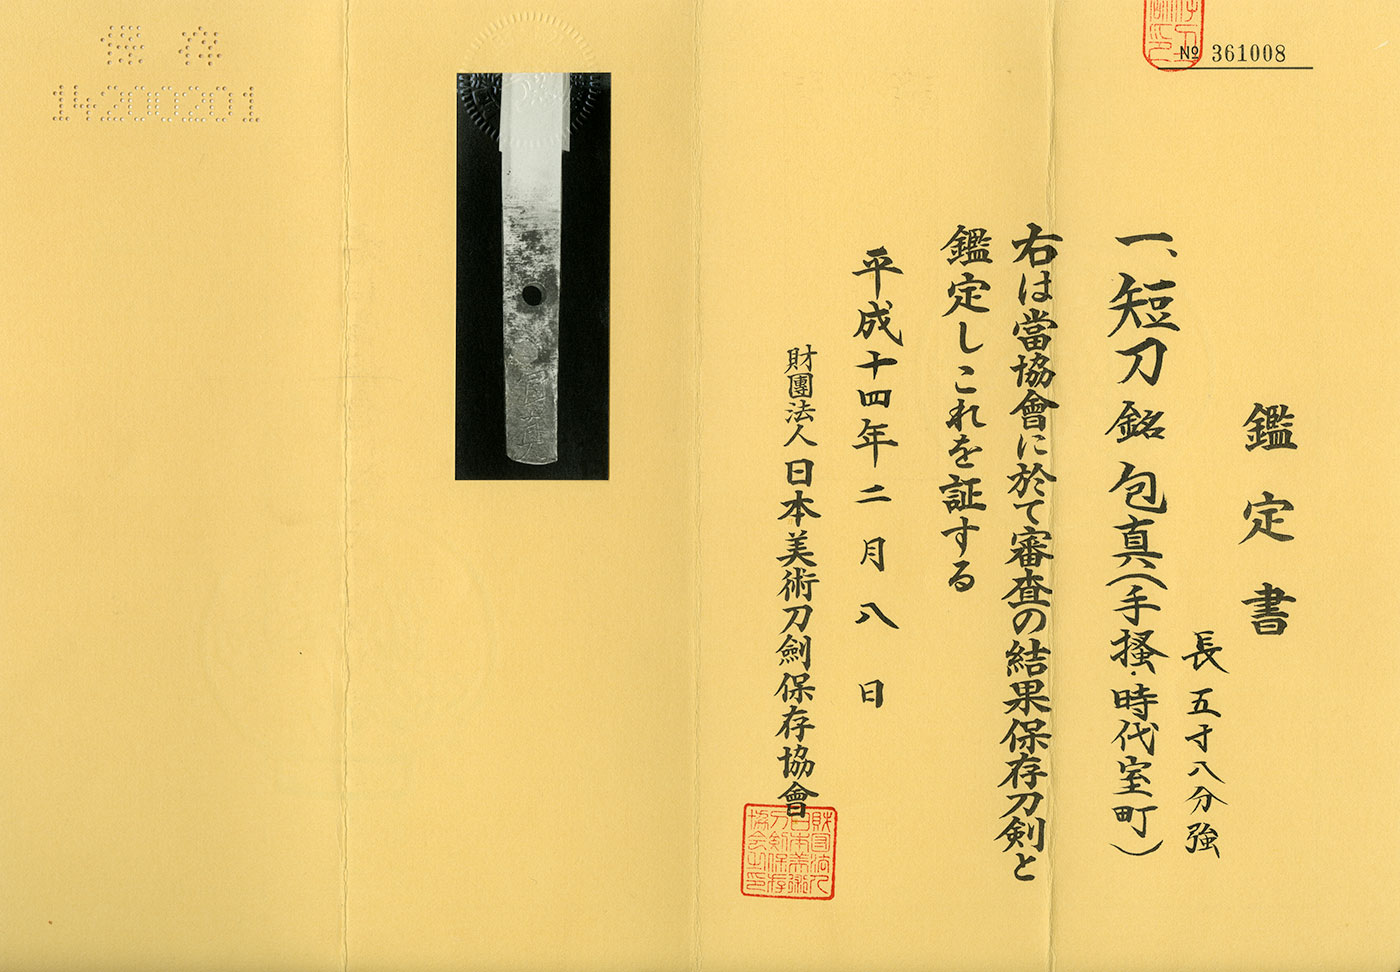 № 361008
鑑定書
長五寸八分強
一、短刀 銘 包真（手掻・時代室町）
右は當協會に於て審査の結果保存刀剣と
鑑定しこれを証する
平成十四年二月八日
財團法人日本美術刀劍保存協會
保存
14200201